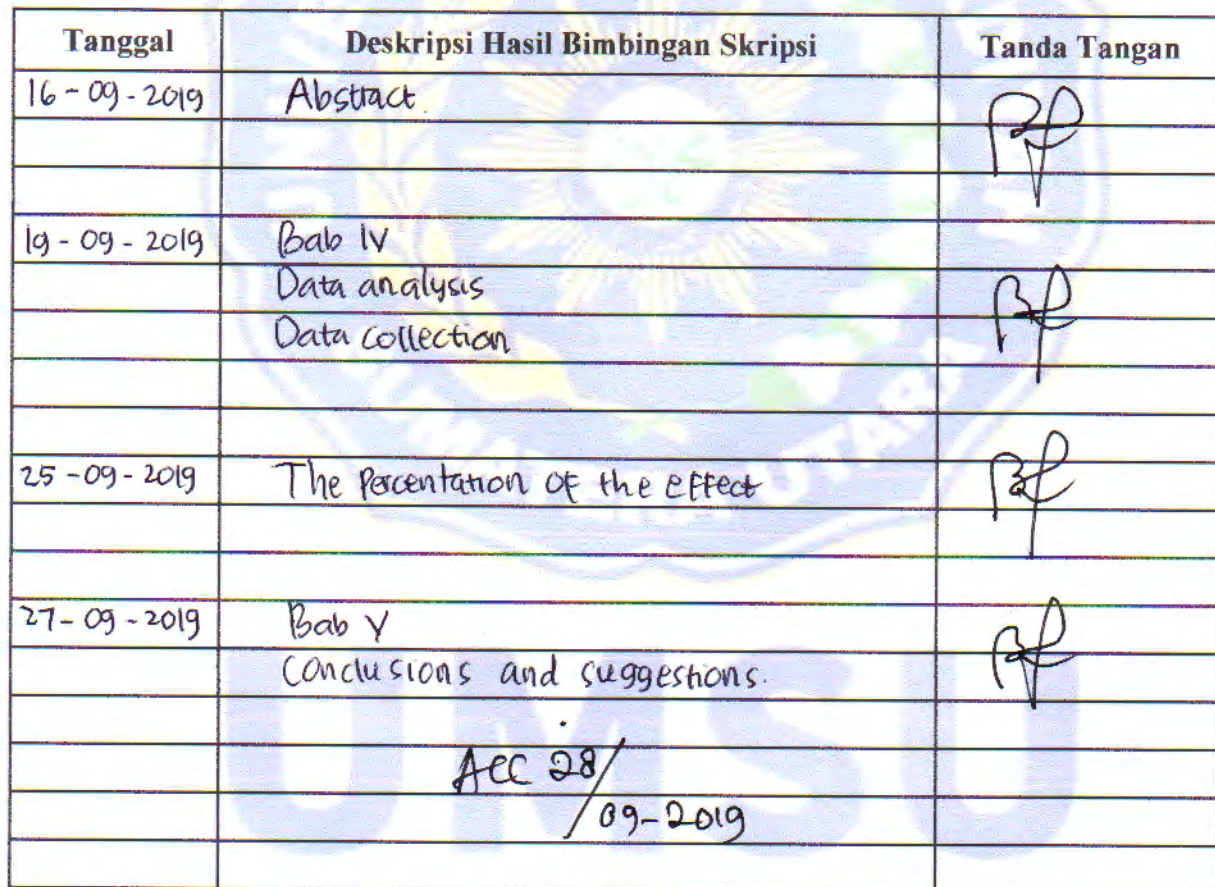 Tanggal Deskripsi Hasil Bimbingan Skripsi Tanda Tangan
16-09-2019 Abstract.
19-09-2019 Bab IV
Data analysis
Data collection
25-09-2019 The Percentation of the effect
27-09-2019 Bab V
Conclusions and suggestions.
ACC 28/
09-2019
UTARA
UMSU